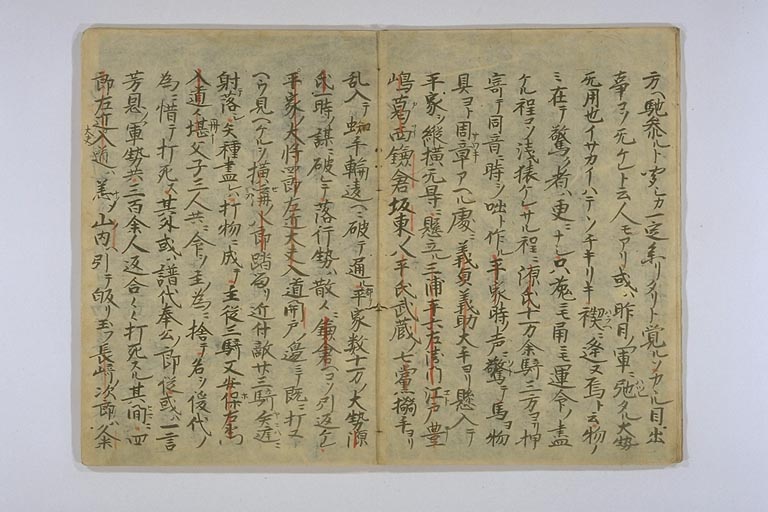 方ヘ馳参ルト聞ヒカ一定来リタリト覚ルソカヽル目出
事コソ无ケレト云人モアリ或ハ昨日ノ軍ニ弛タル大勢
无用也イサカイハテノチキリキ禊ニ逢又馬ト云物ノ
ミ在テ驚ク者ハ更ニナシ只兎ニモ角ニモ運命ノ盡
ケル程コソ浅猿ケレサル程ニ源氏十万余騎三方ヨリ押
寄テ同音ニ時ヲ咄ト作ル平家時ノ声ニ驚テ馬ヨ物
具ヨト周章アヘル處ヘ義貞義助大手ヨリ懸入テ
平家ヲ縦横无尋ニ懸立ル三浦平六左衛門江戸豊
嶋葛西鎌倉坂東ノ八平氏武蔵ノ七黨搦手ヨリ
乱入テ蜘手輪違ヘニ破テ通ル平家数十万ノ大勢源
氏一時ノ謀ニ破レテ落行勢ハ散々ニ鎌倉ヘコソ引返シケレ
平家ノ大将四郎左近大夫入道関戸ノ邊ニテ既ニ打ス
ヘウ見ヘケルヲ横溝八郎踏留リ近付敵廿三騎矢庭ニ
射落シ矢種盡レハ打物ニ成テ主従三騎又安保左衛門
入道々堪父子三人共ニ命ヲ主ノ為ニ捨テ名ヲ後代ノ
為ニ惜テ打死ス其外或ハ譜代奉公ノ郎従或ハ一言
芳恩ノ軍勢共三百余人返合々々打死スル其間ニ四
郎左近大夫入道ハ恙山内ヘ引テ皈リ玉フ長崎次郎久米